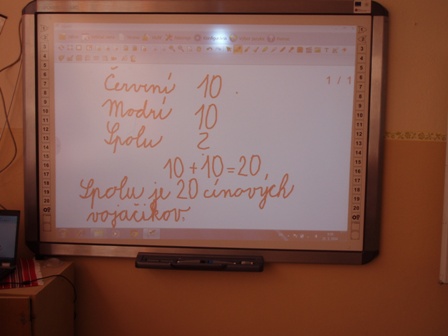 Červení 10
1 / 1
Modrí 10
Spolu ?
10 + 10 = 20
Spolu je 20 cínových
vojačikov.